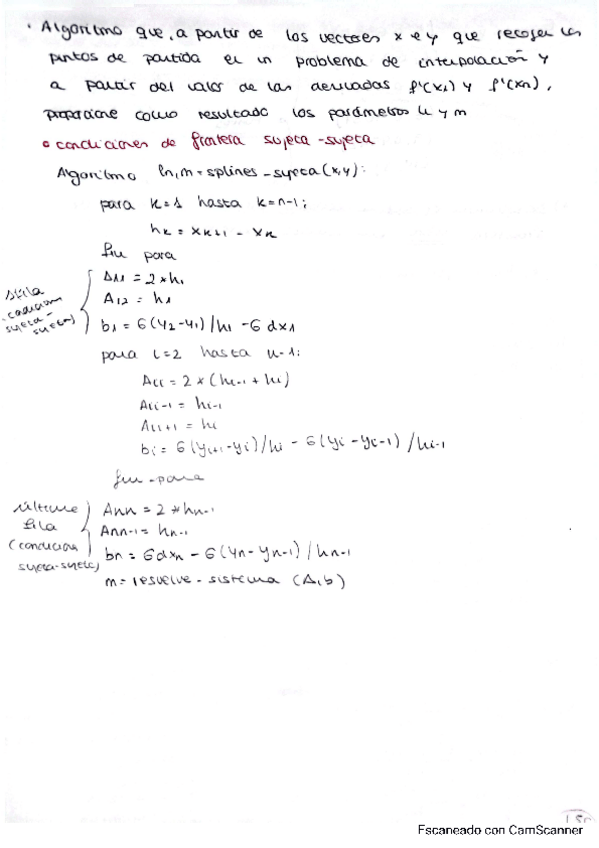 · Algoritmo que, a partir de los vectores x e y que recogen los
puntos de partida en un problema de interpolación y
a partir del valor de las derivadas f'(x1) y f'(xn),
proporcione como resultado los parámetros h y m
• condiciones de frontera sujeta-sujeta
Algoritmo [h,m=splines-sujeta(x,y):
para k=1 hasta k=n-1:
hk = xk+1 - xk
fin para
1ª fila (condición sujeta-sujeta)
A11 = 2*h1
A12 = h1
b1 = 6(y2-y1)/h1 - 6dx1
para i=2 hasta n-1:
Aii = 2*(hi-1 + hi)
Aii-1 = hi-1
Aii+1 = hi
bi = 6(yi+1-yi)/hi - 6(yi-yi-1)/hi-1
fin-para
última fila (condición sujeta-sujeta)
Ann = 2*hn-1
Ann-1 = hn-1
bn = 6dxn - 6(yn-yn-1)/hn-1
m = resuelve-sistema (A,b)
Escaneado con CamScanner